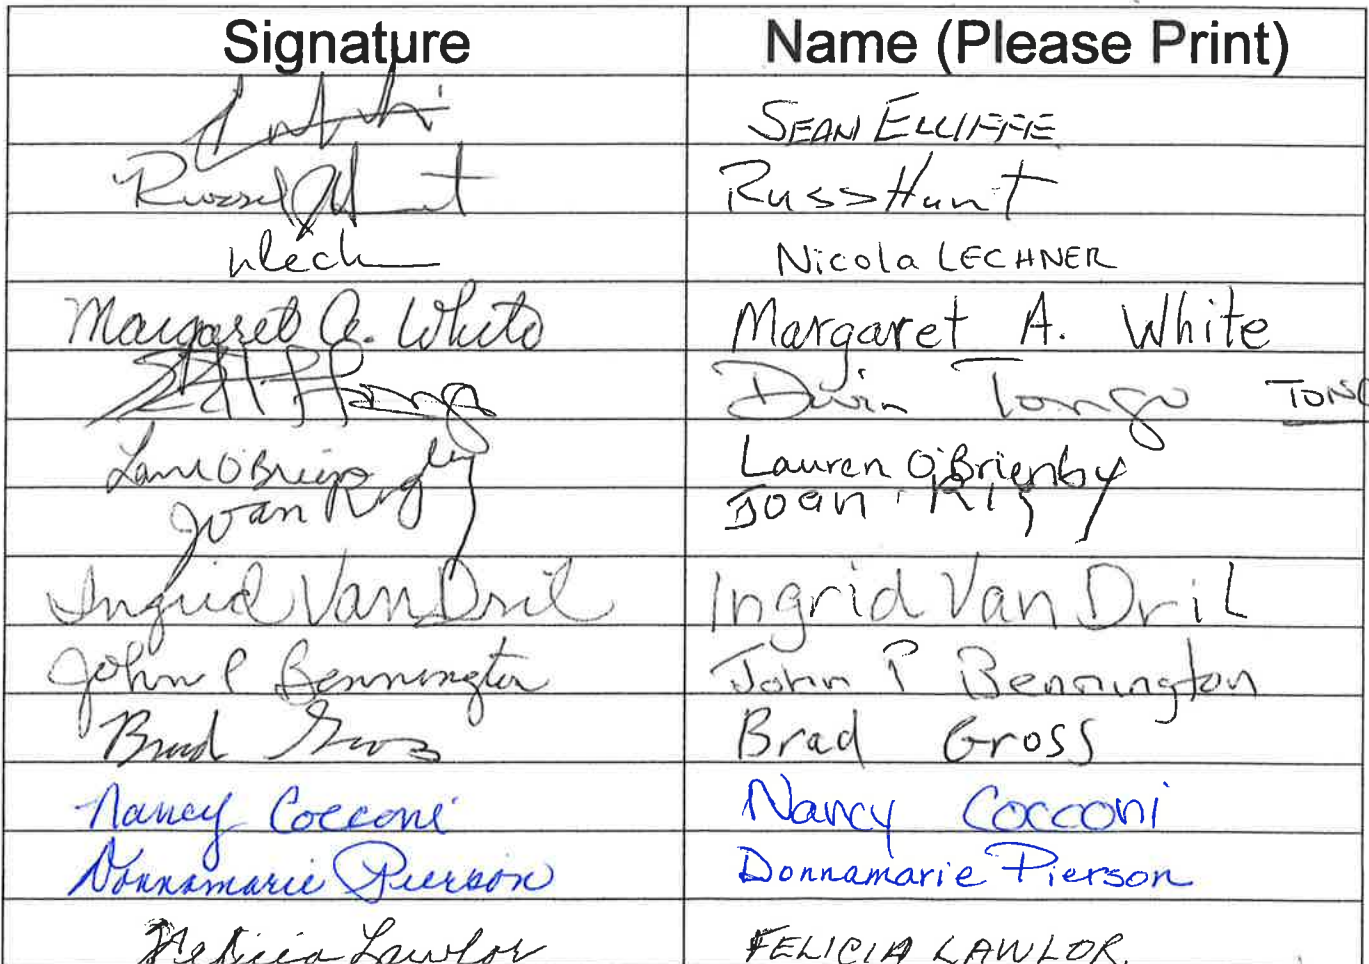 Signature Name (Please Print)
SEAN ELLIFFE
Russel Hunt Russ Hunt
nlech Nicola LECHNER
Margaret A. White Margaret A. White
Tongo TONG
Lauren O'Brien Lauren O'Brien
Joan Rigby Joan Rigby
Ingrid Van Dril Ingrid Van Dril
John P Bennington John P Bennington
Brad Gross Brad Gross
Nancy Cocconi Nancy Cocconi
Donnamarie Pierson Donnamarie Pierson
Felicia Lawlor FELICIA LAWLOR